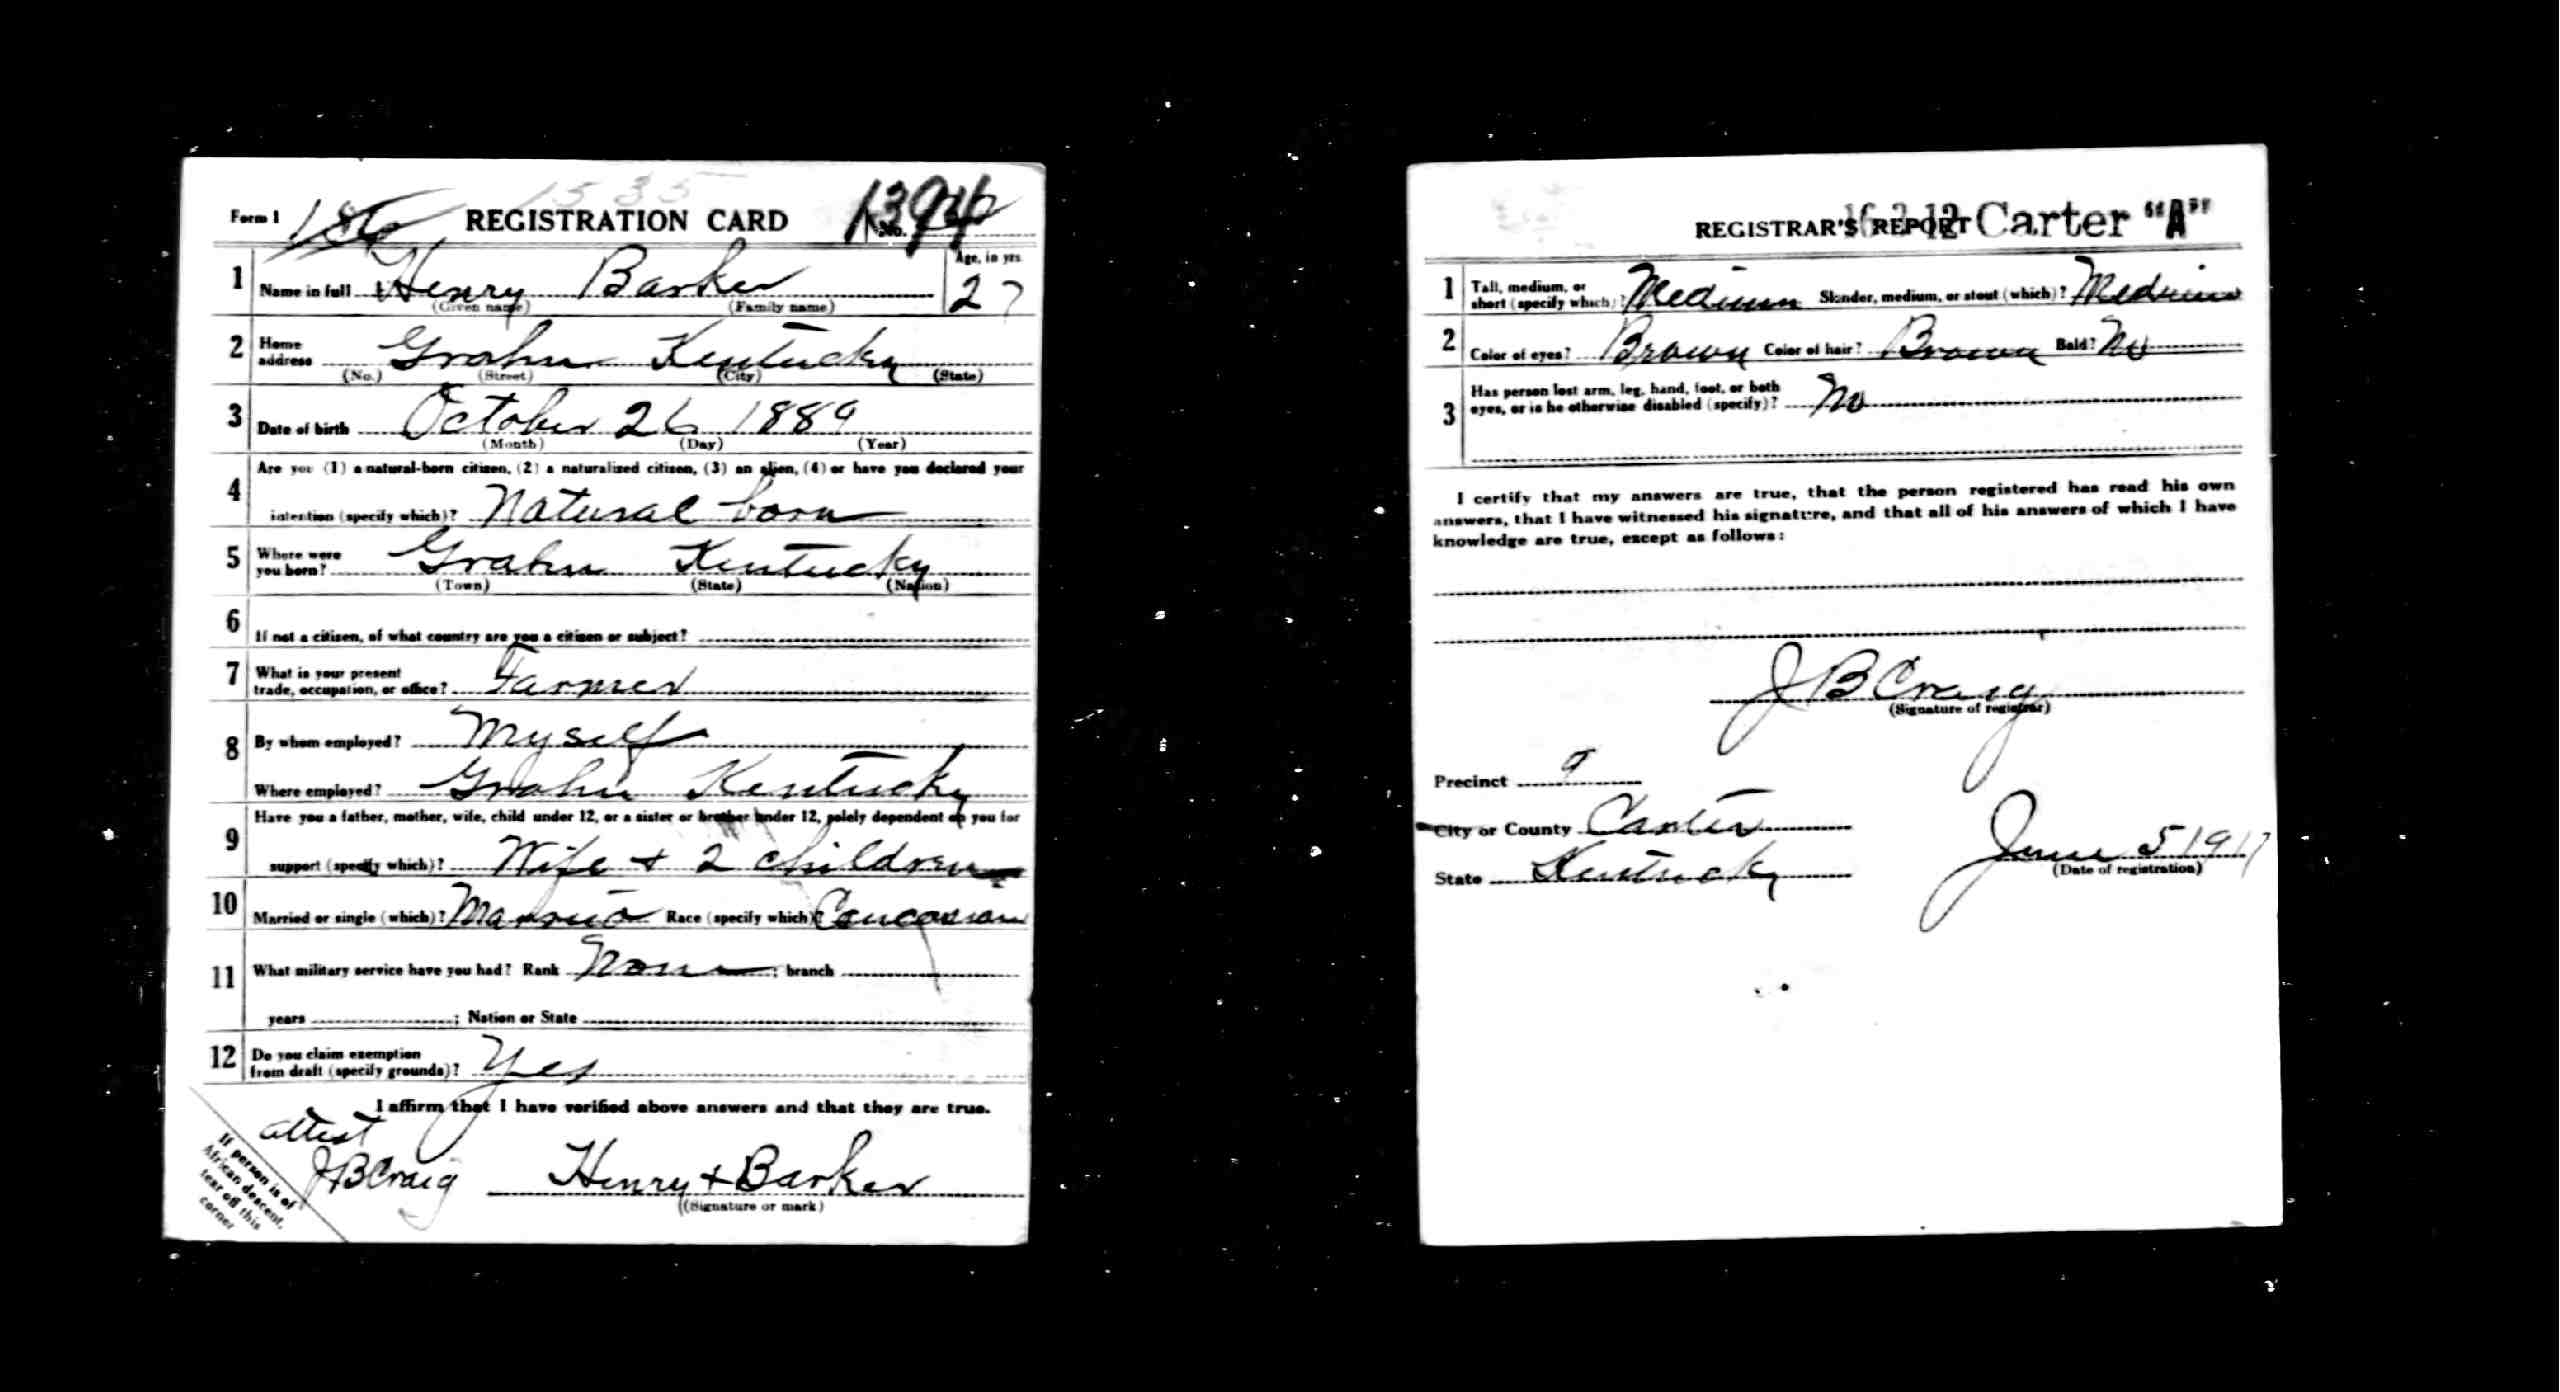 1535
Form 1 REGISTRATION CARD No.
1 Name in full Henry Barker Age, in yrs. 27
(Given name) (Family name)
2 Home address Grahn Kentucky
(No.) (Street) (City) (State)
3 Date of birth October 26 1889
(Month) (Day) (Year)
4 Are you (1) a natural-born citizen, (2) a naturalized citizen, (3) an alien, (4) or have you declared your
intention (specify which)? Natural born
5 Where were you born? Grahn Kentucky
(Town) (State) (Nation)
6 If not a citizen, of what country are you a citizen or subject?
7 What is your present
trade, occupation, or office? Farmer
8 By whom employed? Myself
Where employed? Grahn Kentucky
9 Have you a father, mother, wife, child under 12, or a sister or brother under 12, solely dependent on you for
support (specify which)? Wife + 2 children
10 Married or single (which)? Married Race (specify which)? Caucasian
11 What military service have you had? Rank None ; branch
years ; Nation or State
12 Do you claim exemption
from draft (specify grounds)? Yes
I affirm that I have verified above answers and that they are true.
attest
J B Craig Henry + Barker
(Signature or mark)
If person is of
African descent,
tear off this
corner
REGISTRAR'S REPORT Carter "A"
1 Tall, medium, or
short (specify which)? Medium Slender, medium, or stout (which)? Medium
2 Color of eyes? Brown Color of hair? Brown Bald? No
3 Has person lost arm, leg, hand, foot, or both
eyes, or is he otherwise disabled (specify)? No
I certify that my answers are true, that the person registered has read his own
answers, that I have witnessed his signature, and that all of his answers of which I have
knowledge are true, except as follows:
J B Craig
(Signature of registrar)
Precinct 9
City or County Carter
State Kentucky June 5 1917
(Date of registration)